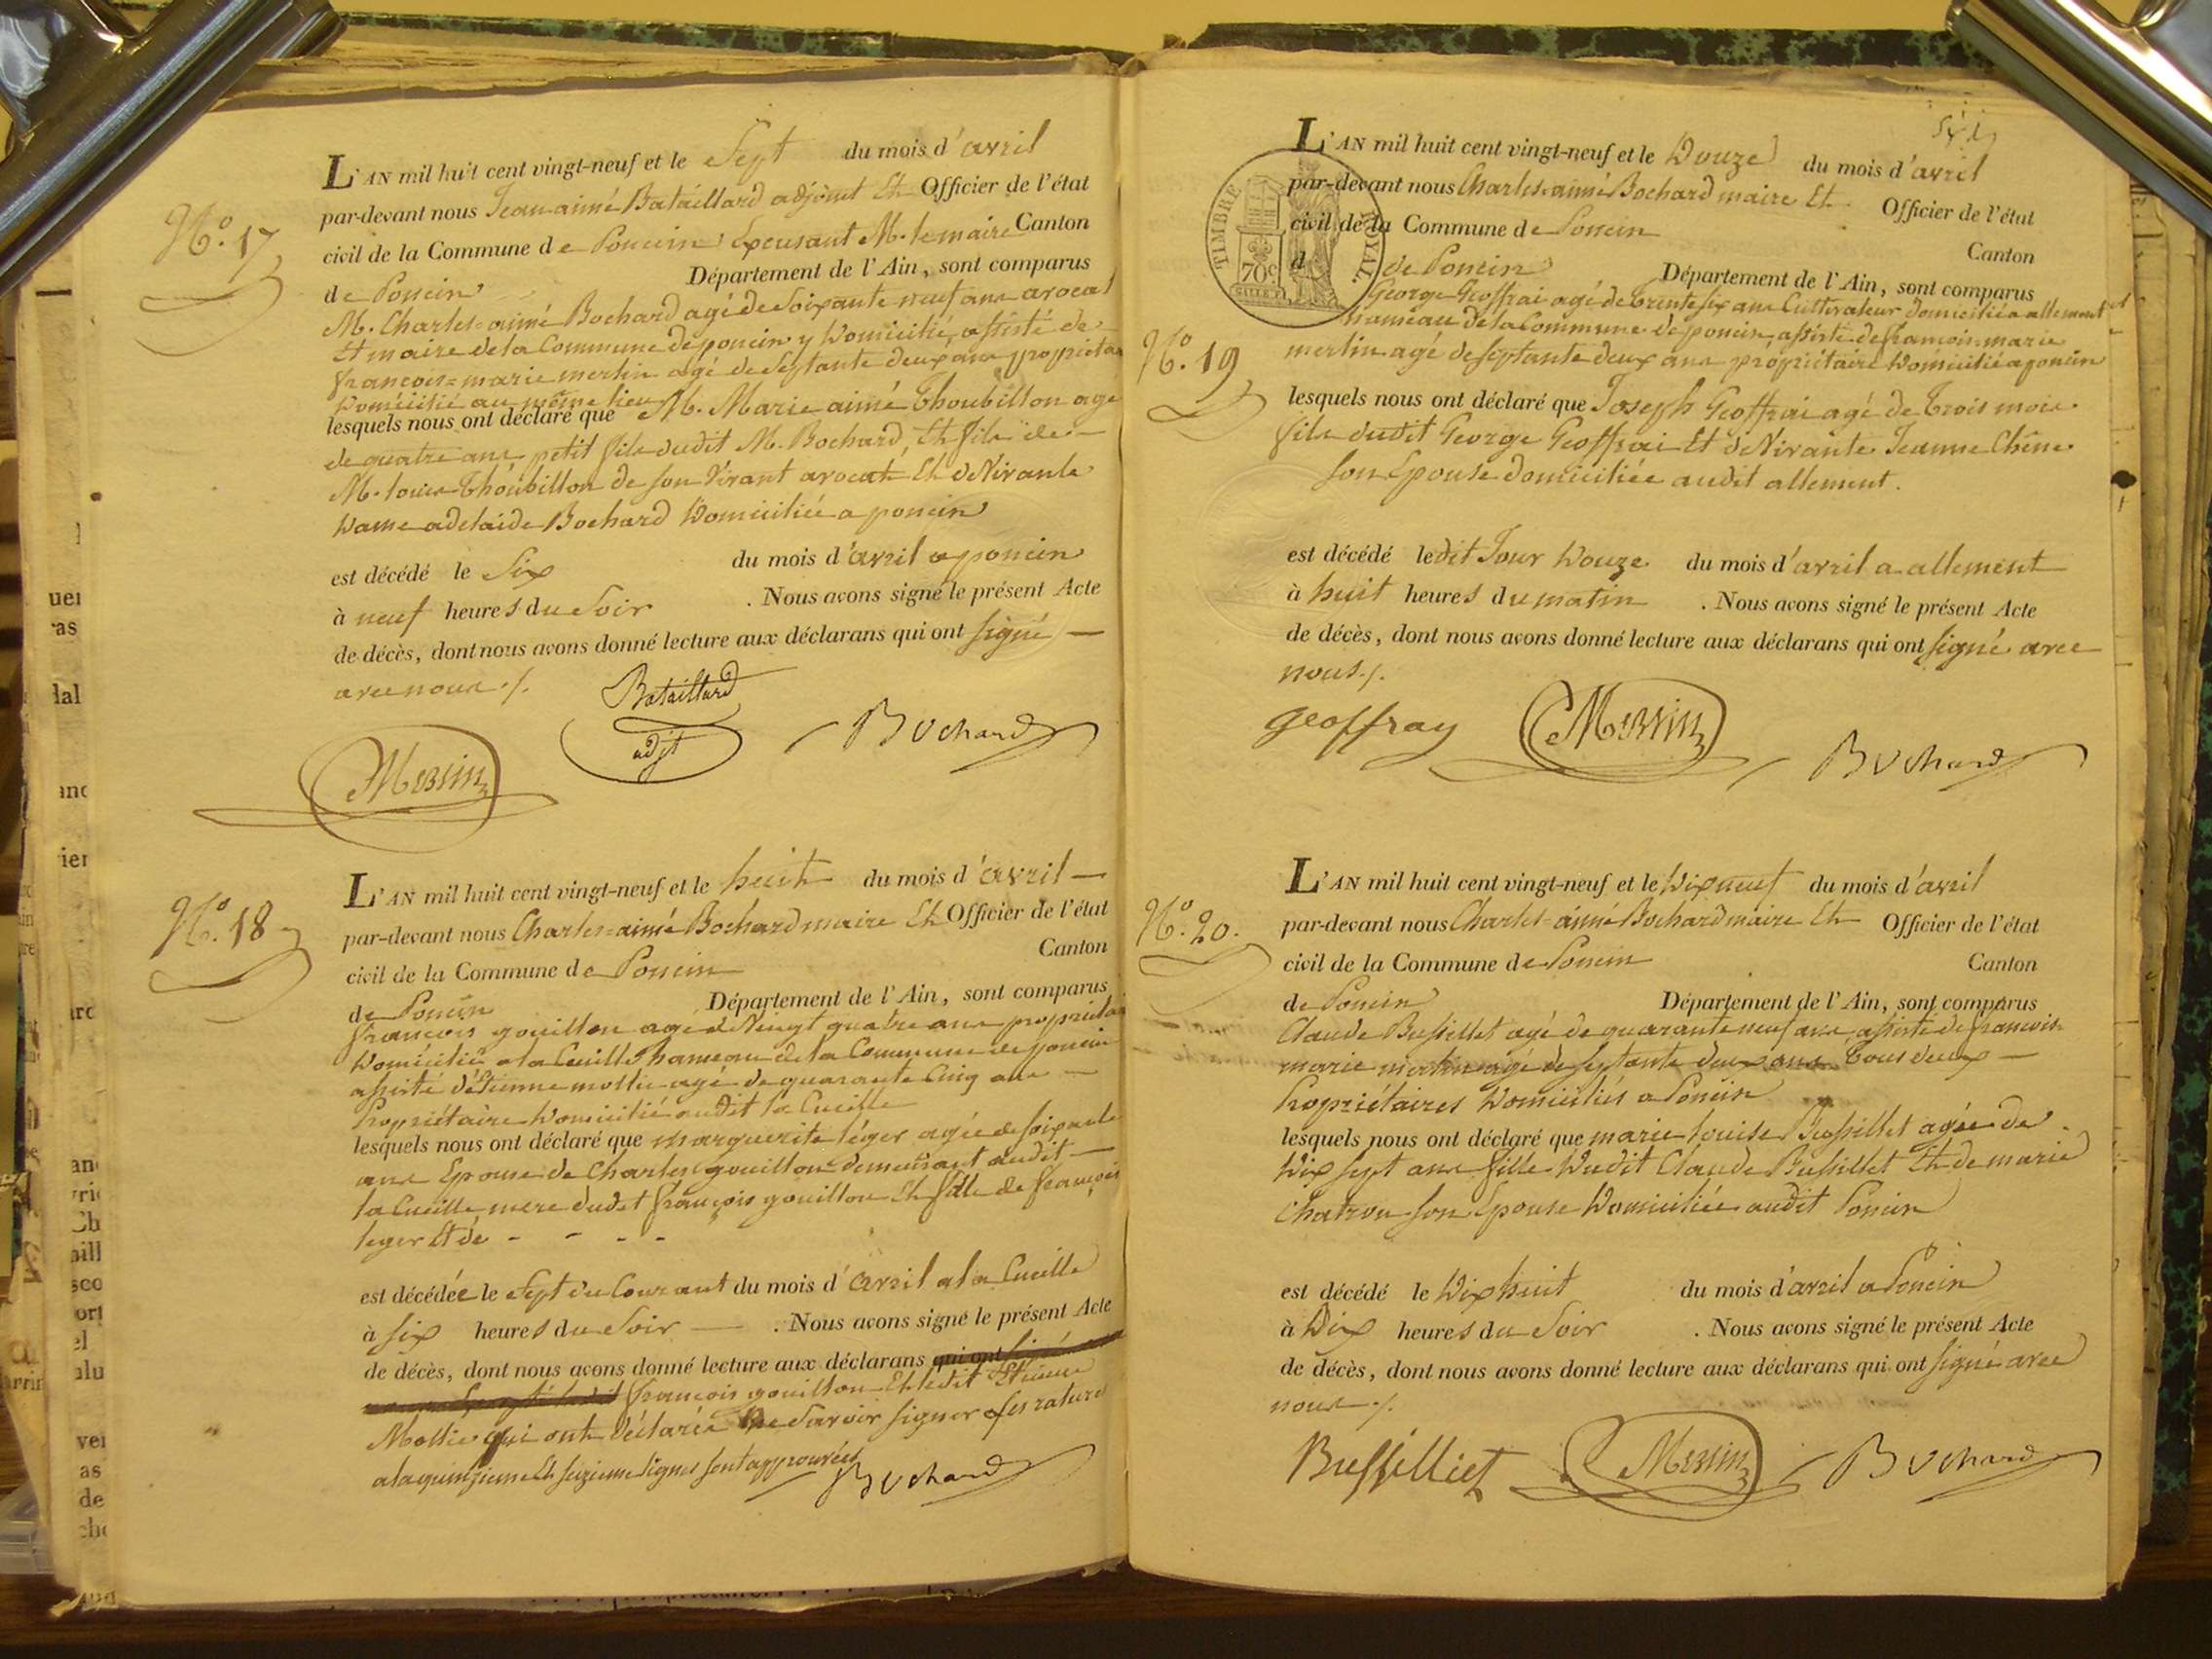 N.o 17
L'AN mil huit cent vingt-neuf et le Sept du mois d'avril
par-devant nous Jean aimé Bataillard adjoint Et Officier de l'état
civil de la Commune de Poncin Excusant M. le maire Canton
de Poncin Département de l'Ain, sont comparus
M. Charles=aimé Bochard agé de Soixante neuf ans avocat
Et maire de la Commune de poncin y Domicilié, assisté de
françois=marie merlin agé de Septante deux ans proprietai
Domicilié au même lieu
lesquels nous ont déclaré que M. Marie aimé Thoubillon agé
de quatre ans petit fils dudit M. Bochard, Et fils de
M. louis Thoubillon de son Vivant avocat Et de Vivante
Dame adelaide Bochard Domiciliée a poncin
est décédé le Six du mois d'avril a poncin
à neuf heures du Soir . Nous avons signé le présent Acte
de décès, dont nous avons donné lecture aux déclarans qui ont signé
avec nous ./.
Bataillard
adjt
Bochard
Merlin
N.o 18
L'AN mil huit cent vingt-neuf et le huit du mois d'avril
par-devant nous Charles=aimé Bochard maire Et Officier de l'état
civil de la Commune de Poncin Canton
de Poncin Département de l'Ain, sont comparus
françois gouillon agé de Vingt quatre ans proprietai
Domicilié a la Cueille hameau de la Commune de poncin
assisté d'Etienne mollie agé de quarante Cinq ans
Propriétaire Domicilié audit la Cueille
lesquels nous ont déclaré que marguerite léger agée de soixante
ans Epouse de Charles gouillon demeurant audit
la Cueille mere dudit françois gouillon Et fille de françois
leger Et de - - - -
est décédée le Sept du Courant du mois d'avril a la Cueille
à six heures du Soir . Nous avons signé le présent Acte
de décès, dont nous avons donné lecture aux déclarans qui ont signé
françois gouillon Et ledit Etienne
Mollie qui ont déclaré ne Savoir signer les ratures
a la quinzieme Et seizieme lignes sont approuvées
Bochard
TIMBRE ROYAL.
70c
L'AN mil huit cent vingt-neuf et le Douze du mois d'avril
par-devant nous Charles=aimé Bochard maire Et Officier de l'état
civil de la Commune de Poncin Canton
d de Poncin Département de l'Ain, sont comparus
George Geoffrai agé de Trente six ans Cultivateur domicilié a allement
hameau de la Commune de poncin, assisté de françois=marie
N.o 19
merlin agé de septante deux ans propriétaire Domicilié a poncin
lesquels nous ont déclaré que Joseph Geoffrai agé de Trois mois
fils dudit George Geoffrai Et de Vivante Jeanne Chêne
son Epouse domiciliée audit allement.
est décédé ledit Jour Douze du mois d'avril a allement
à huit heures du matin . Nous avons signé le présent Acte
de décès, dont nous avons donné lecture aux déclarans qui ont signé avec
nous ./.
geoffray
Merlin
Bochard
N.o 20.
L'AN mil huit cent vingt-neuf et le Dix neuf du mois d'avril
par-devant nous Charles=aimé Bochard maire Et Officier de l'état
civil de la Commune de Poncin Canton
de Poncin Département de l'Ain, sont comparus
Claude Bussillet agé de quarante neuf ans assisté de françois=
marie merlin agé de septante deux ans Tous deux
Propriétaires Domiciliés a Poncin
lesquels nous ont déclaré que marie louise Bussillet agée de
Dix sept ans fille Dudit Claude Bussillet Et de marie
Chatron son Epouse Domiciliée audit Poncin
est décédé le Dix huit du mois d'avril a Poncin
à Dix heures du Soir . Nous avons signé le présent Acte
de décès, dont nous avons donné lecture aux déclarans qui ont signé avec
nous ./.
Bussilliet
Merlin
Bochard